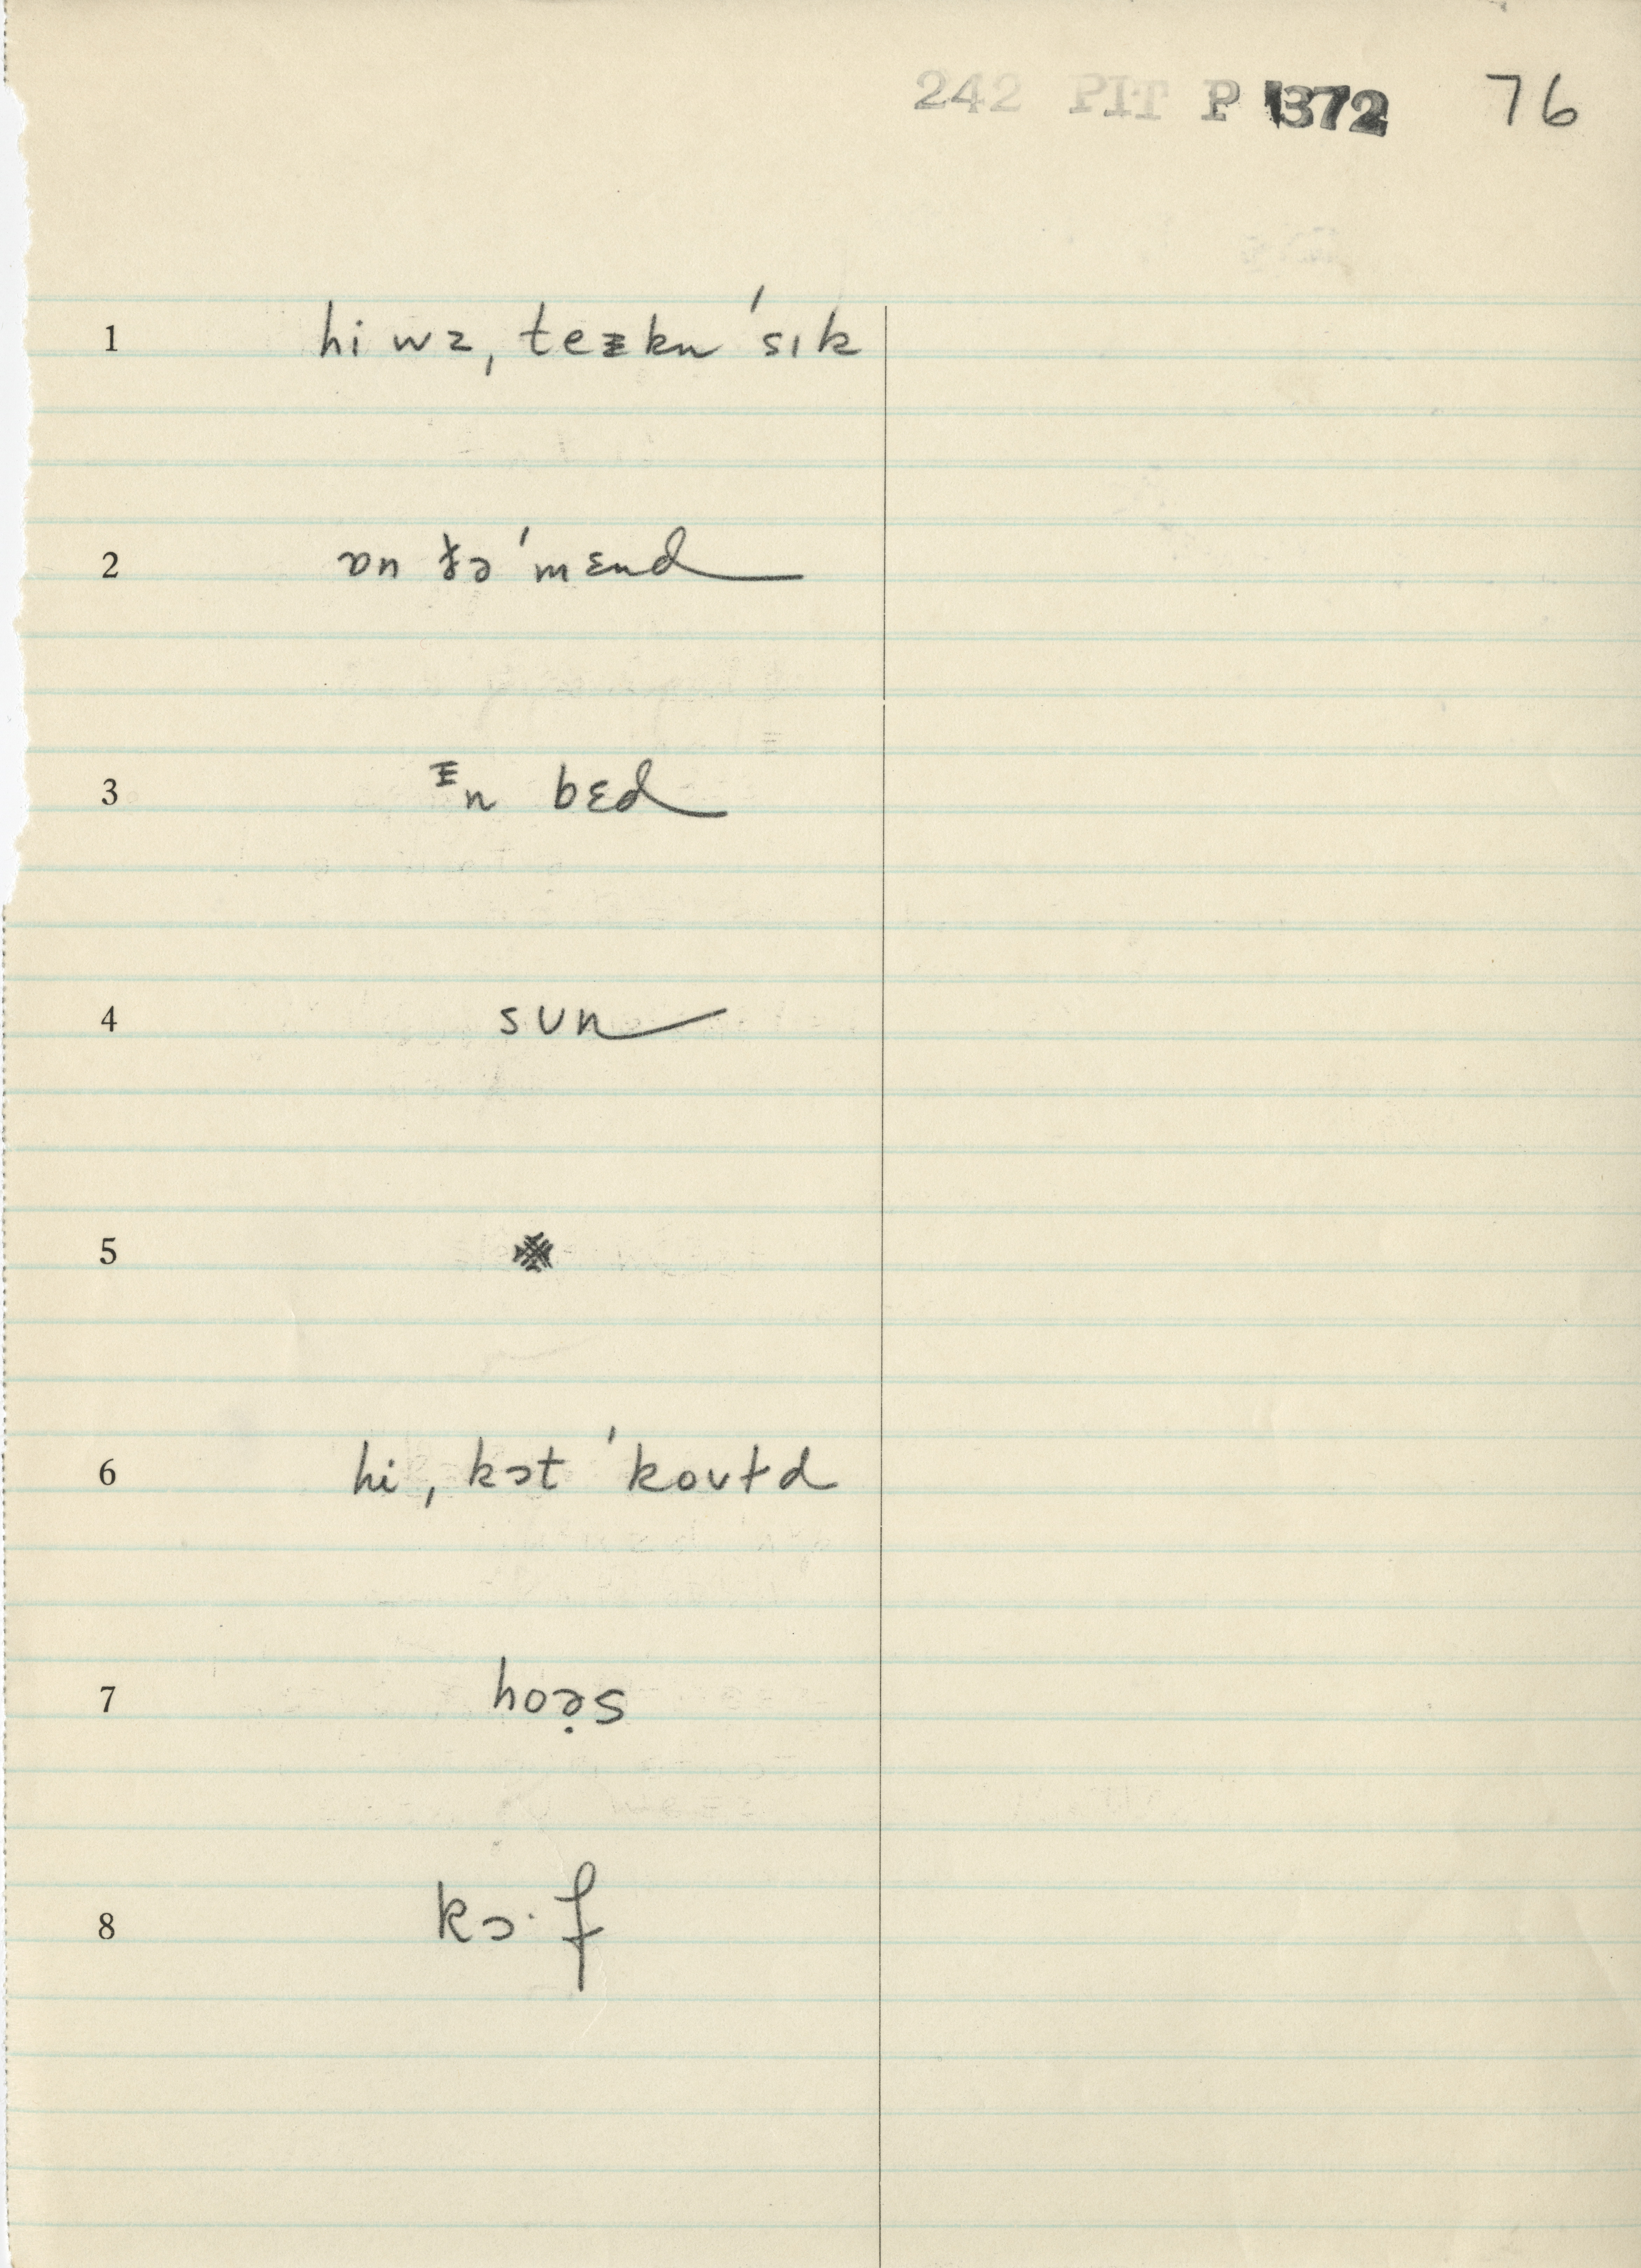 242 PIT P 1372 76
1 hi wz, teɪkn ˈsɪk
2 ɒn ðə ˈmɛnd
3 ɪn bɛd
4 sun
5
6 hi, kɔt ˈkoʊɫd
7 hoə̣s
8 kɔ·f